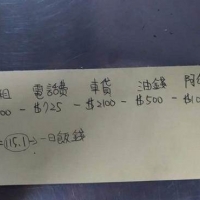 租 電話費 車貸 油錢
00 - $725 - $2100 - $500 - $1
= 15.1 → 一日飯錢